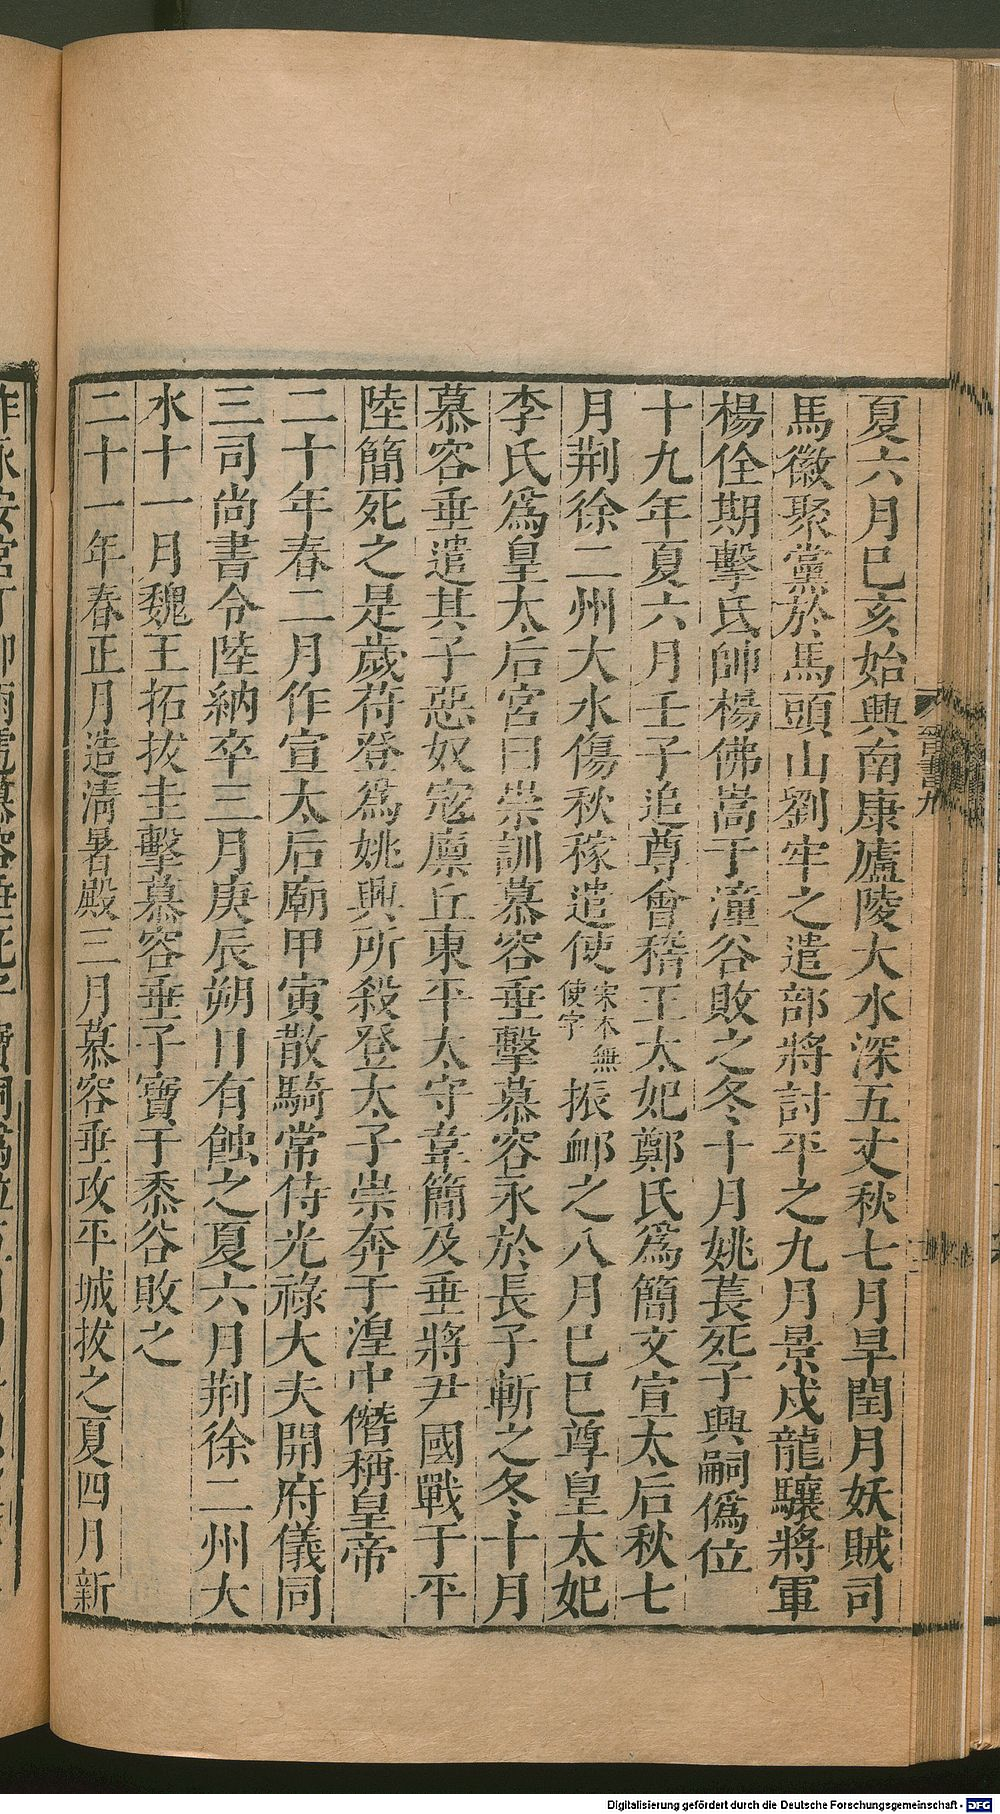 夏六月巳亥始興南康廬陵大水深五丈秋七月旱閏月妖賊司
馬徽聚黨於馬頭山劉牢之遣部將討平之九月景戍龍驤將軍
楊佺期擊氐帥楊佛嵩于潼谷敗之冬十月姚萇死子興嗣僞位
十九年夏六月壬子追尊會稽王太妃鄭氏爲簡文宣太后秋七
月荆徐二州大水傷秋稼遣使宋本無使字振䘏之八月巳巳尊皇太妃
李氏爲皇太后宮曰崇訓慕容垂擊慕容永於長子斬之冬十月
慕容垂遣其子惡奴宼廩丘東平太守韋簡及垂將尹國戰于平
陸簡死之是歲苻登爲姚興所殺登太子崇奔于湟中僭稱皇帝
二十年春二月作宣太后廟甲寅散騎常侍光祿大夫開府儀同
三司尚書令陸納卒三月庚辰朔日有蝕之夏六月荆徐二州大
水十一月魏王拓拔圭擊慕容垂子寶于黍谷敗之
二十一年春正月造清暑殿三月慕容垂攻平城拔之夏四月新
晉書九
Digitalisierung gefördert durch die Deutsche Forschungsgemeinschaft - DFG